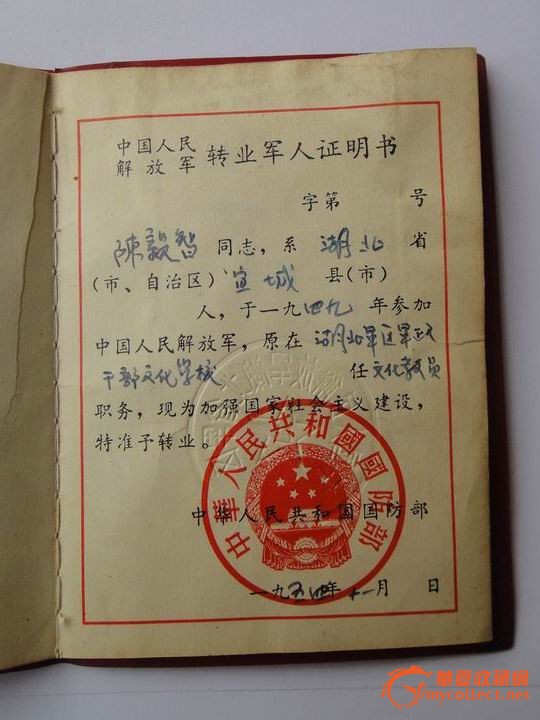 中国人民
解放军 转业军人证明书
字第 号
陳毅智 同志，系 湖北 省
（市、自治区）宜城 县（市）
人，于一九四九 年参加
中国人民解放军，原在 湖北军区军正
干部文化学校 任文化教员
职务，现为加强国家社会主义建设，
特准予转业。
中华人民共和國國防部
中华人民共和国国防部
一九五四年十一月 日
mycollect.net